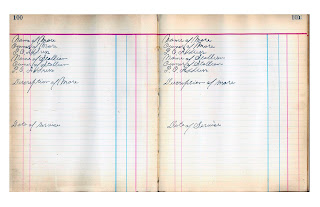 100
Name of Mare
Owner of Mare
P.O. Address
Name of Stallion
Owner of Stallion
P.O. Address
Description of Mare
Date of Service
101
Name of Mare
Owner of Mare
P.O. Address
Name of Stallion
Owner of Stallion
P.O. Address
Description of Mare
Date of Service